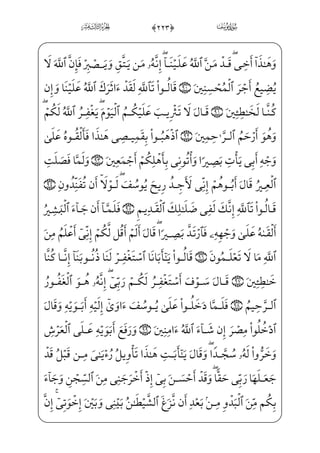 الجزء الثالث عشر ﴿٢٢٣﴾ سورة يوسف
وَهَـٰذَآ أَخِى ۖ قَدْ مَنَّ ٱللَّهُ عَلَيْنَآ ۖ إِنَّهُۥ مَن يَتَّقِ وَيَصْبِرْ فَإِنَّ ٱللَّهَ لَا
يُضِيعُ أَجْرَ ٱلْمُحْسِنِينَ ﴿٩٠﴾ قَالُوا۟ تَٱللَّهِ لَقَدْ ءَاثَرَكَ ٱللَّهُ عَلَيْنَا وَإِن
كُنَّا لَخَـٰطِـِٔينَ ﴿٩١﴾ قَالَ لَا تَثْرِيبَ عَلَيْكُمُ ٱلْيَوْمَ ۖ يَغْفِرُ ٱللَّهُ لَكُمْ ۖ
وَهُوَ أَرْحَمُ ٱلرَّٰحِمِينَ ﴿٩٢﴾ ٱذْهَبُوا۟ بِقَمِيصِى هَـٰذَا فَأَلْقُوهُ عَلَىٰ
وَجْهِ أَبِى يَأْتِ بَصِيرًا وَأْتُونِى بِأَهْلِكُمْ أَجْمَعِينَ ﴿٩٣﴾ وَلَمَّا فَصَلَتِ
ٱلْعِيرُ قَالَ أَبُوهُمْ إِنِّى لَأَجِدُ رِيحَ يُوسُفَ ۖ لَوْلَآ أَن تُفَنِّدُونِ ﴿٩٤﴾
قَالُوا۟ تَٱللَّهِ إِنَّكَ لَفِى ضَلَـٰلِكَ ٱلْقَدِيمِ ﴿٩٥﴾ فَلَمَّآ أَن جَآءَ ٱلْبَشِيرُ
أَلْقَىٰهُ عَلَىٰ وَجْهِهِۦ فَٱرْتَدَّ بَصِيرًا ۖ قَالَ أَلَمْ أَقُل لَّكُمْ إِنِّىٓ أَعْلَمُ مِنَ
ٱللَّهِ مَا لَا تَعْلَمُونَ ﴿٩٦﴾ قَالُوا۟ يَـٰٓأَبَانَا ٱسْتَغْفِرْ لَنَا ذُنُوبَنَآ إِنَّا كُنَّا
خَـٰطِـِٔينَ ﴿٩٧﴾ قَالَ سَوْفَ أَسْتَغْفِرُ لَكُمْ رَبِّىٓ ۖ إِنَّهُۥ هُوَ ٱلْغَفُورُ
ٱلرَّحِيمُ ﴿٩٨﴾ فَلَمَّا دَخَلُوا۟ عَلَىٰ يُوسُفَ ءَاوَىٰٓ إِلَيْهِ أَبَوَيْهِ وَقَالَ
ٱدْخُلُوا۟ مِصْرَ إِن شَآءَ ٱللَّهُ ءَامِنِينَ ﴿٩٩﴾ وَرَفَعَ أَبَوَيْهِ عَلَى ٱلْعَرْشِ
وَخَرُّوا۟ لَهُۥ سُجَّدًا ۖ وَقَالَ يَـٰٓأَبَتِ هَـٰذَا تَأْوِيلُ رُءْيَـٰىَ مِن قَبْلُ قَدْ
جَعَلَهَا رَبِّى حَقًّا ۖ وَقَدْ أَحْسَنَ بِىٓ إِذْ أَخْرَجَنِى مِنَ ٱلسِّجْنِ وَجَآءَ
بِكُم مِّنَ ٱلْبَدْوِ مِنۢ بَعْدِ أَن نَّزَغَ ٱلشَّيْطَـٰنُ بَيْنِى وَبَيْنَ إِخْوَتِىٓ ۚ إِنَّ